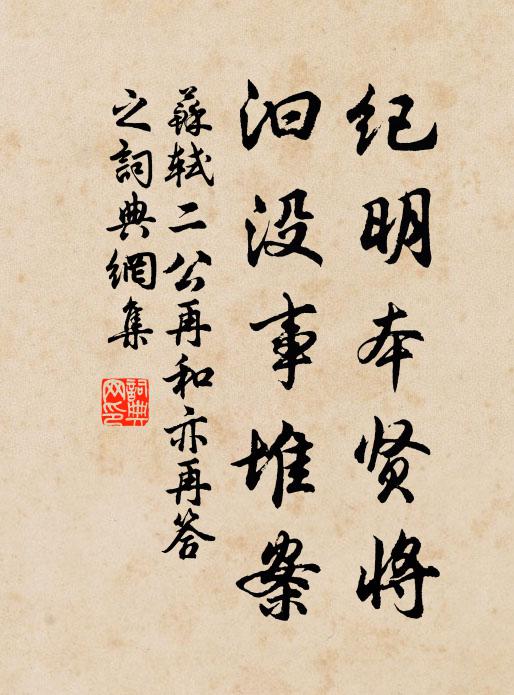 纪明本贤将
汩没事堆案
蘇軾二公再和亦再答
之詞典網集
詞典
网印